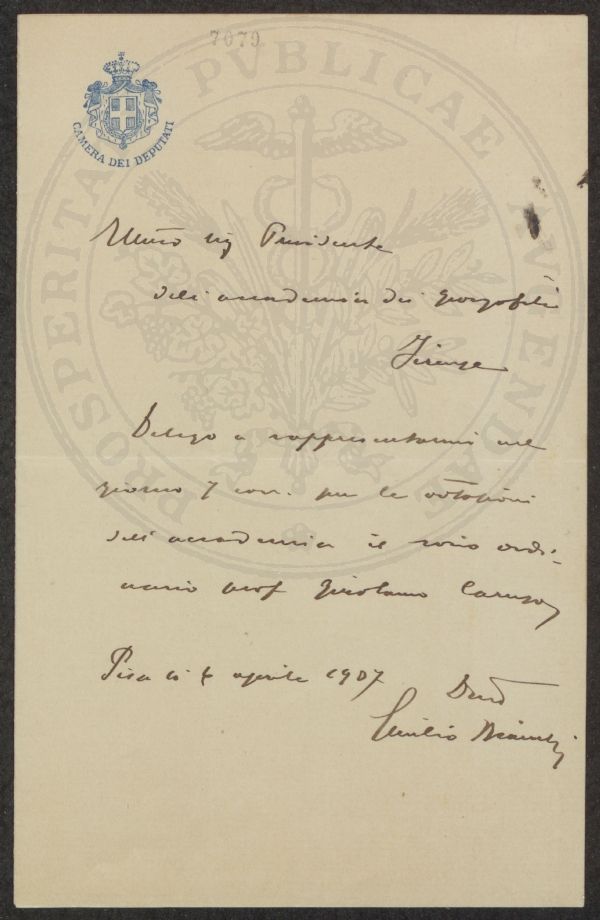 7079
CAMERA DEI DEPUTATI
PROSPERITATI PVBLICAE AVGENDAE
Illmo sig Presidente
dell'accademia dei georgofili
Firenze
Delego a rappresentarmi nel
giorno 7 corr. per le votazioni
dell'accademia il socio ordi-
nario prof Girolamo Caruso
Pisa li 4 aprile 1907
Emilio Bianchi